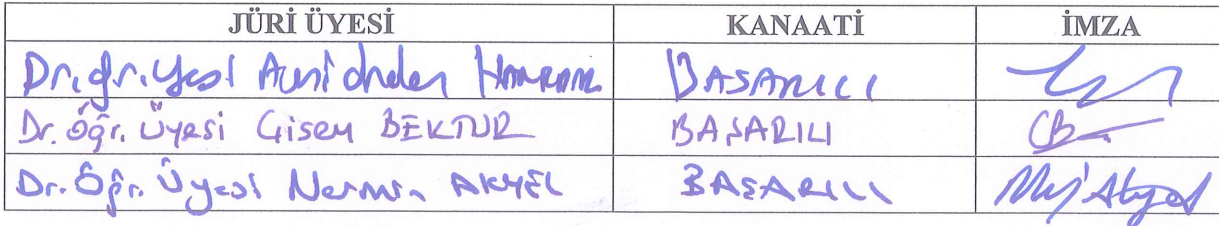 JÜRİ ÜYESİ KANAATİ İMZA
Dr. Öğr. Üyesi BAŞARILI
Dr. Öğr. Üyesi Gizem BEKTUR BAŞARILI
Dr. Öğr. Üyesi Nermin AKYEL BAŞARILI